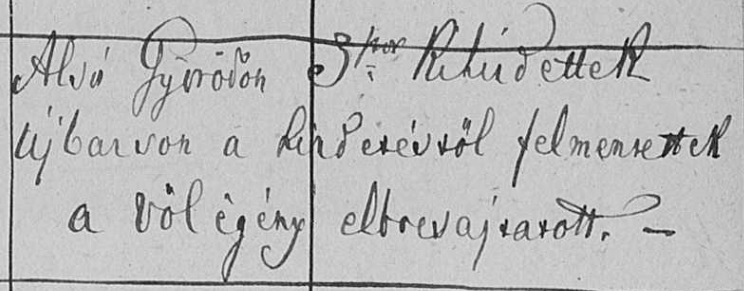 Alsó Györödön 3szor Kihirdettek
Újbarson a hirdetésröl felmentettek
a völegény elbocsajtatott. –